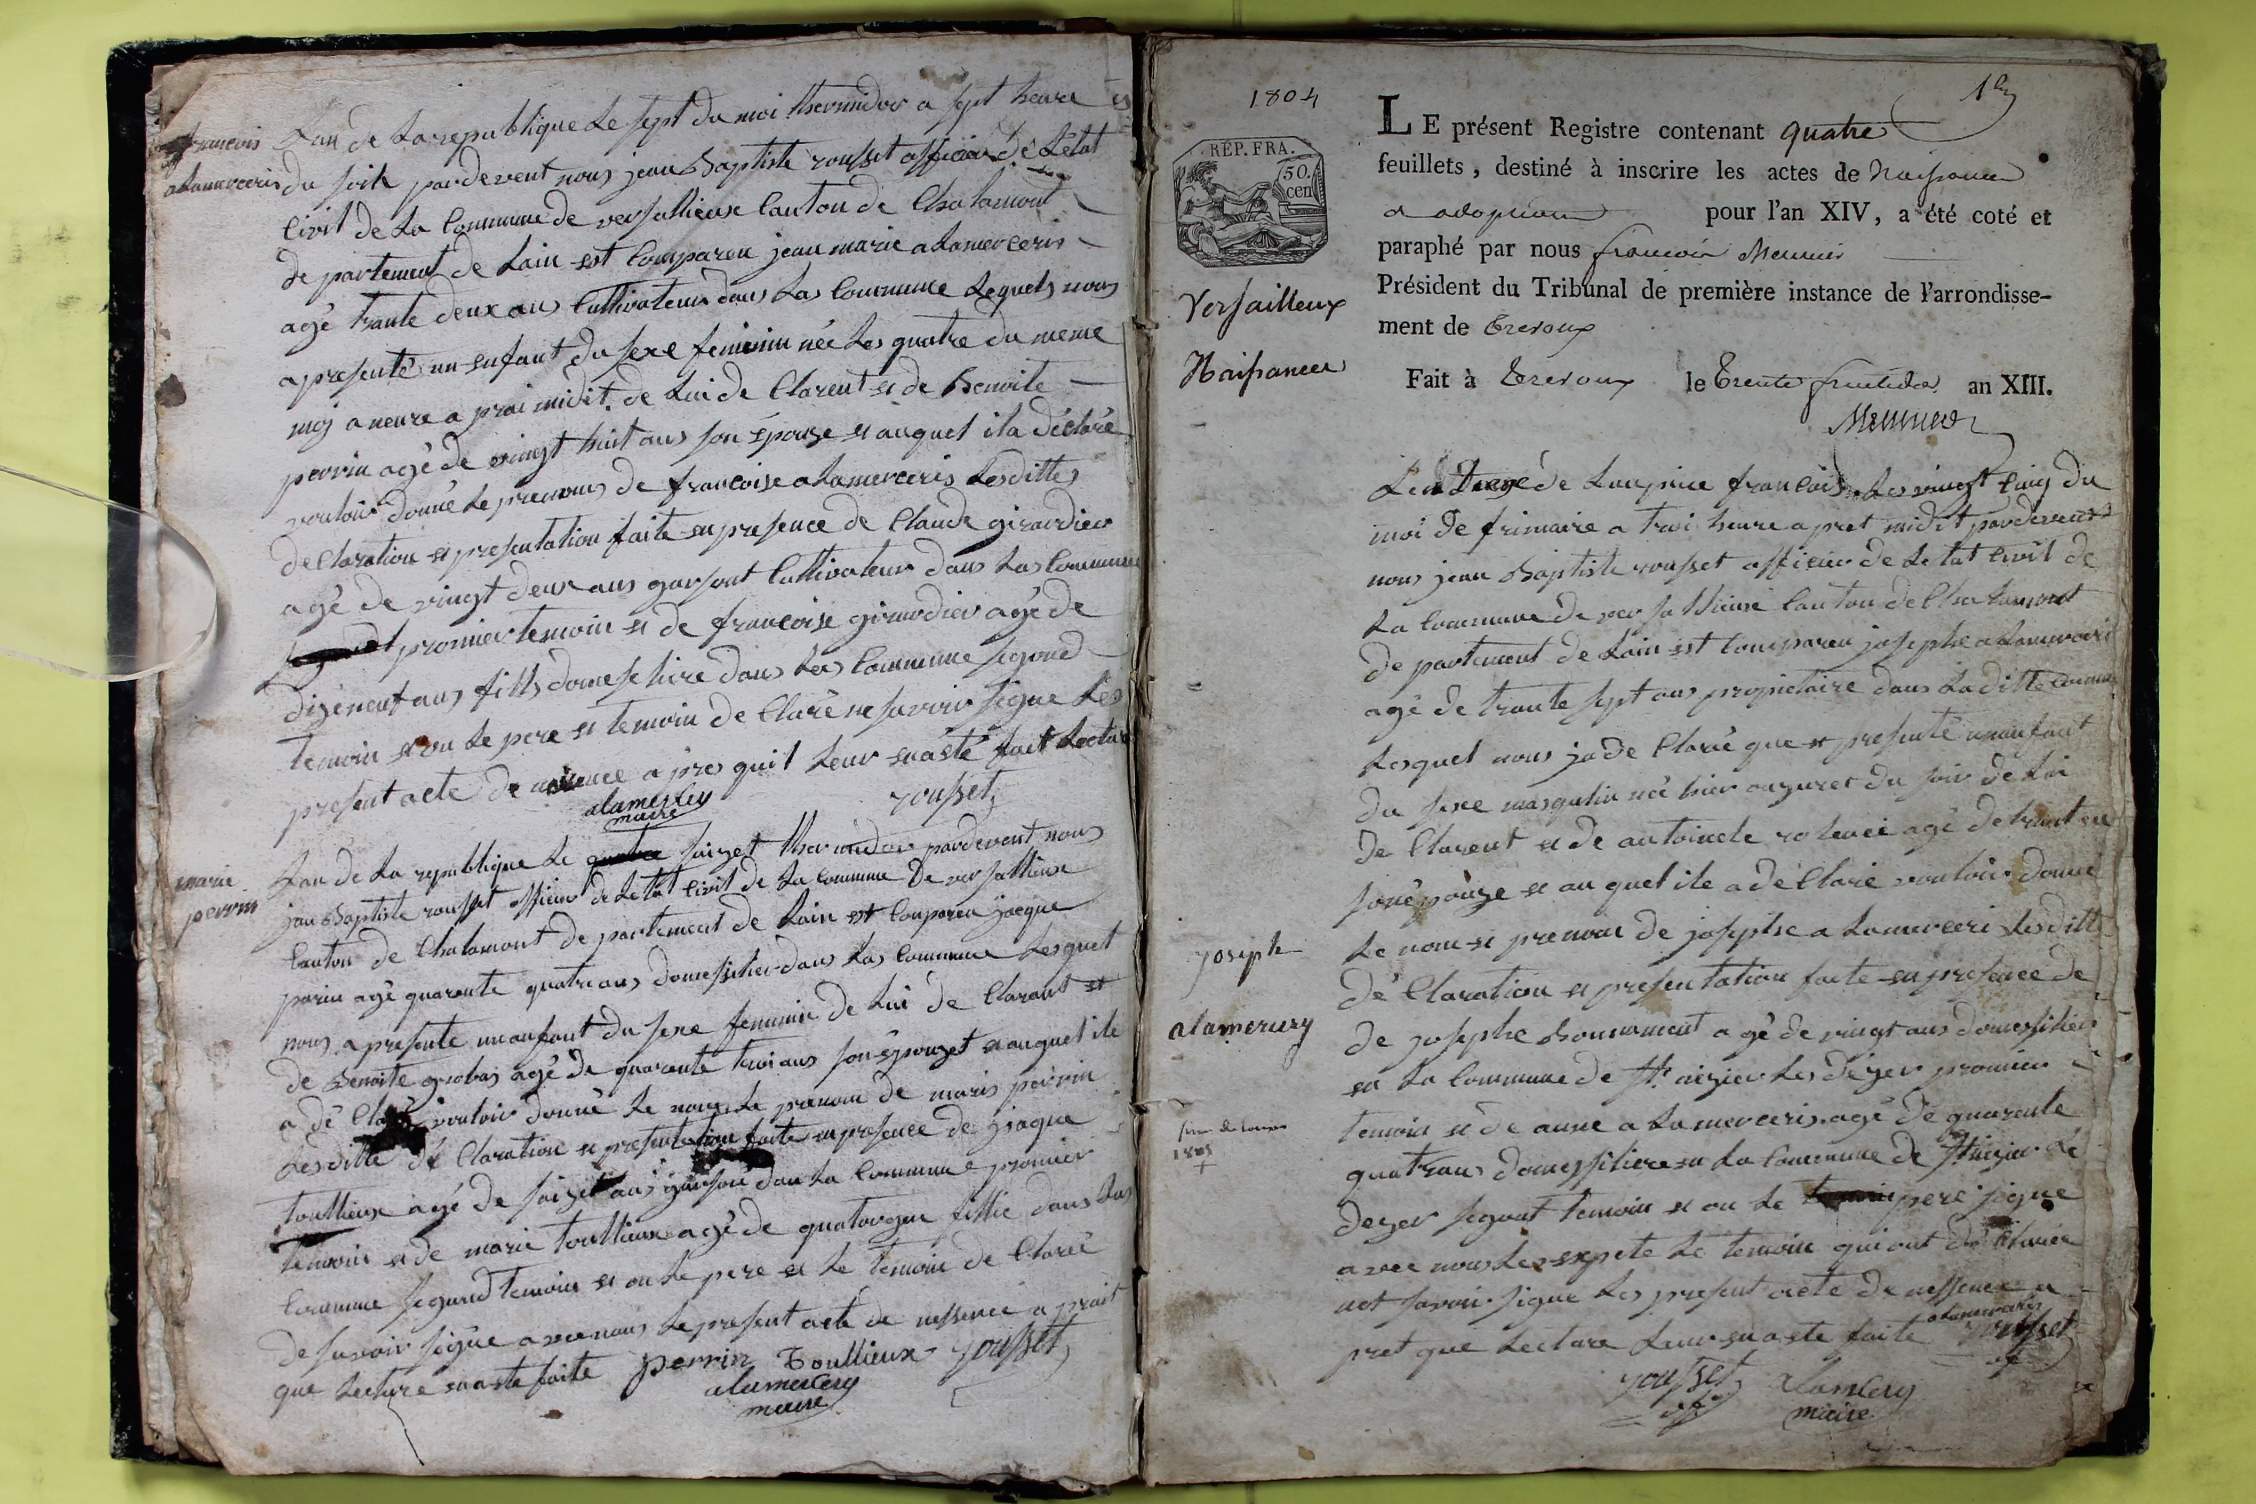 francois
alamerceris
Lan de La republique Le sept du moi thermidor a sept heure
du soir pardevent nous jean Baptiste rousset officier de Létat
Civil de La Commune de versallieux Canton de Chalamont
de partement de Lain est Compareu jean marie alamerceris
agé trante deux ans Cultivateur dans Las Commune Lequels nous
a presenté un enfant du sexe feminin née Les quatre du meme
moi a neure a prai midit de Lui de Clarent et de Benoite
perrin agé de vingt huit ans son épouze et auquel ila déclaré
vouloir donné Le prenoms de francoise alamerceris Lesdittes
de Claration et presentation faite en presence de Claude girardier
agé de vingt deux ans garsont Cultivateur dans Las Commune
promier temoin et de francoise girardier agé de
dizeneuf ans fills domestiere dans Las Commune segond
temoin et ou Le pere et temoin de Claré ne savoir signe Les
present acte de a pres quil Leur en a été fait Lecture
alamercery
maire
rousset
marie
perrin
Lan de La republique Le saizet thermidor pardevent nous
jan Baptiste rousset officier de Letat Civil de La Commune De versallieux
Canton de Chalamont de partement de Lain est Compareu jacque
perin agé quarante quatre ans domestitier dans Las Commune Lesquel
nous a presente un anfant du sexe feminin de Lui de Clarant et
de Benoite grobas agé de quarante troi ans son épouzet et auquel ile
a dé Claré vouloir donné Le nom Le prenom de maris perrin
Lesditte dé Claration et presentation faite en presence de jiaque
toullieux agé de saizet ans garson dan La Commune promier
temoin et de marie toullieux agé de quatorzen fillie dans Las
Commune segund temoin et ou Le pere et Le temoin de Claré
de savoir signe avec nous Le present acte de nessence a prait
que Lecture en a ete faite perrin Toullieux rousset
alamercery
maire
1804
1er
RÉP. FRA.
50.
cen
Versailleux
Naissances
LE présent Registre contenant quatre
feuillets, destiné à inscrire les actes de Naissance
et adoption pour l'an XIV, a été coté et
paraphé par nous francois Meunier
Président du Tribunal de première instance de l'arrondisse-
ment de Trevoux
Fait à Trevoux le Trente fructidor an XIII.
Meunier
de Lanpire francois Les vingt cinq du
moi de frimaire a troi heure a pret midit pardevent
nous jean Baptiste rousset officier de Letat Civil de
La Commune de versallieux Canton de Chalamont
de partement de Lain est Comparen josephe alamerceris
agé de trante sept ans propietaire dans Laditte Commune
Lesquel nous ja de Claré que et presenté unanfant
du sexe masqulin né hier onzures du soir de Lui
de Clarent et de antoinete agé de trant
son épouze et au quel ile a dé Claré vouloir donné
Le nom et prenom de josephe alamerceri Lesditt
dé Claration et presentation faite en presence de
de josephe Bonnament agé de vingt ans domestitier
en La Commune de St nizier Les dézer promier
temoin et de anne alamerceris agé de quarante
quatrans domestitiere en La Commune de St nizier Le
dezer segont temoin et ou Le pere signe
avec nous Les expete Le temoin qui ont dé Clairer
net savoir signe Les present acte de nessence a
pret que Lecture Leur en a ete faite alamerceris
rousset
rousset alamercery
maire
joseph
alamercery
1805